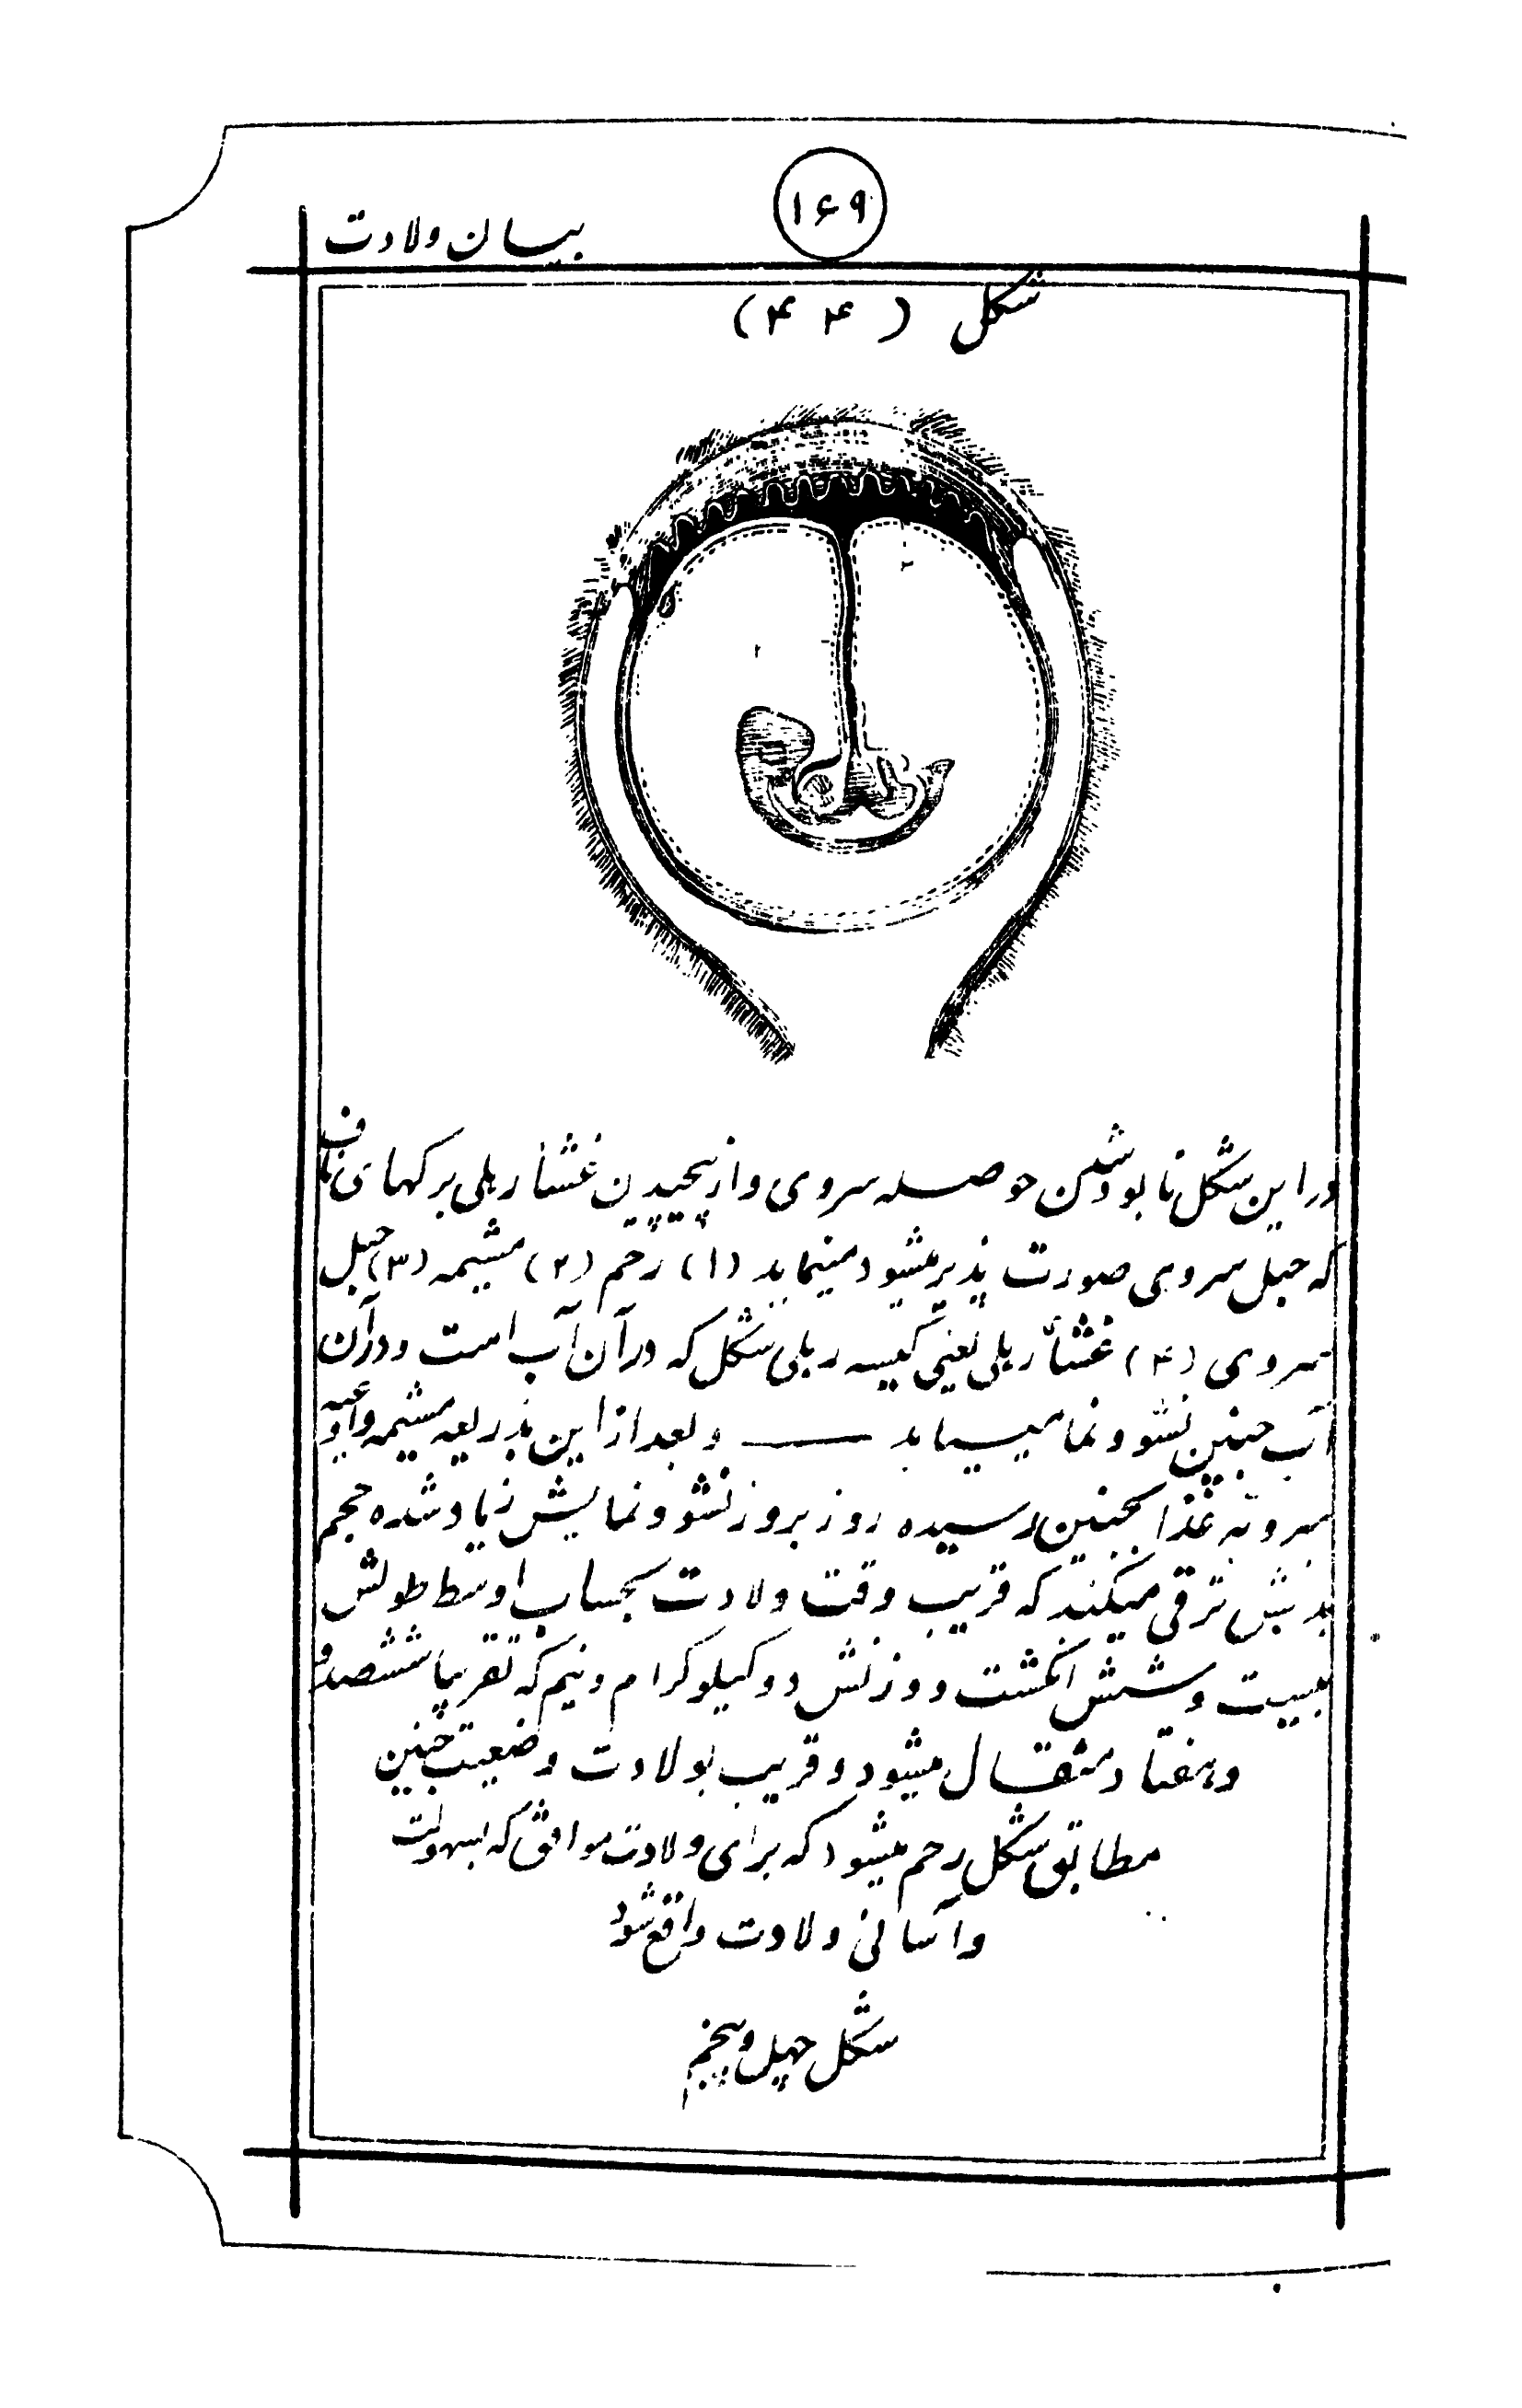 ۱۶۹
بیان ولادت
شکل (۴۴)
در این شکل نابود شدن حوصله سروی و از پیچیدن غشأ ربلی برگهای ناف
که حبل سروی صورت پذیر میشود مینماید (۱) رحم (۲) مشیمه (۳) حبل
سروی (۴) غشأ ربلی یعنی کیسه ربلی شکل که در آن آب است و در آن
آب جنین نشو و نما میـیابد — و بعد از این بذریعه مشیمه و اوعیه
سرویه غذا بجنین رسیده روز بروز نشو و نمایش زیاد شده حجم
بدنش ترقی میکند که قریب وقت ولادت بحساب اوسط طولش
بیست و شش انگشت و وزنش دو کیلوگرام و نیم که تقریباً ششصد و
و هفتاد مثقال میشود و قریب بولادت وضعیت جنین
مطابق شکل رحم میشود که برای ولادت موافق که بسهولت
و آسانی ولادت واقع شود
شکل چهل و پنجم